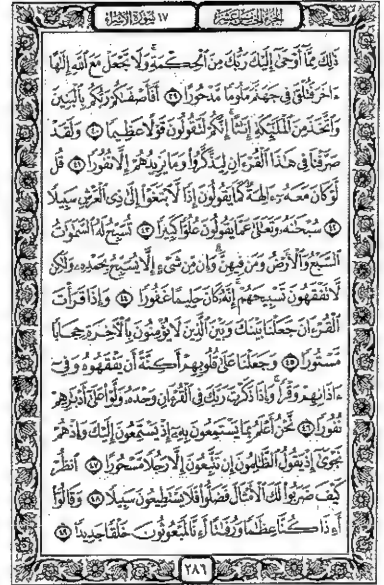 الجزء الخامس عشر
١٧ سورة الإسراء
ذَٰلِكَ مِمَّا أَوْحَىٰ إِلَيْكَ رَبُّكَ مِنَ الْحِكْمَةِ وَلَا تَجْعَلْ مَعَ اللَّهِ إِلَٰهًا
ءَاخَرَ فَتُلْقَىٰ فِي جَهَنَّمَ مَلُومًا مَّدْحُورًا ٣٩ أَفَأَصْفَىٰكُمْ رَبُّكُم بِالْبَنِينَ
وَاتَّخَذَ مِنَ الْمَلَٰٓئِكَةِ إِنَٰثًا إِنَّكُمْ لَتَقُولُونَ قَوْلًا عَظِيمًا ٤٠ وَلَقَدْ
صَرَّفْنَا فِي هَٰذَا الْقُرْءَانِ لِيَذَّكَّرُوا وَمَا يَزِيدُهُمْ إِلَّا نُفُورًا ٤١ قُل
لَّوْ كَانَ مَعَهُۥٓ ءَالِهَةٌ كَمَا يَقُولُونَ إِذًا لَّابْتَغَوْا إِلَىٰ ذِي الْعَرْشِ سَبِيلًا
٤٢ سُبْحَٰنَهُۥ وَتَعَٰلَىٰ عَمَّا يَقُولُونَ عُلُوًّا كَبِيرًا ٤٣ تُسَبِّحُ لَهُ السَّمَٰوَٰتُ
السَّبْعُ وَالْأَرْضُ وَمَن فِيهِنَّ وَإِن مِّن شَيْءٍ إِلَّا يُسَبِّحُ بِحَمْدِهِۦ وَلَٰكِن
لَّا تَفْقَهُونَ تَسْبِيحَهُمْ إِنَّهُۥ كَانَ حَلِيمًا غَفُورًا ٤٤ وَإِذَا قَرَأْتَ
الْقُرْءَانَ جَعَلْنَا بَيْنَكَ وَبَيْنَ الَّذِينَ لَا يُؤْمِنُونَ بِالْءَاخِرَةِ حِجَابًا
مَّسْتُورًا ٤٥ وَجَعَلْنَا عَلَىٰ قُلُوبِهِمْ أَكِنَّةً أَن يَفْقَهُوهُ وَفِيٓ
ءَاذَانِهِمْ وَقْرًا وَإِذَا ذَكَرْتَ رَبَّكَ فِي الْقُرْءَانِ وَحْدَهُۥ وَلَّوْا عَلَىٰٓ أَدْبَٰرِهِمْ
نُفُورًا ٤٦ نَّحْنُ أَعْلَمُ بِمَا يَسْتَمِعُونَ بِهِۦٓ إِذْ يَسْتَمِعُونَ إِلَيْكَ وَإِذْ هُمْ
نَجْوَىٰٓ إِذْ يَقُولُ الظَّٰلِمُونَ إِن تَتَّبِعُونَ إِلَّا رَجُلًا مَّسْحُورًا ٤٧ انظُرْ
كَيْفَ ضَرَبُوا لَكَ الْأَمْثَالَ فَضَلُّوا فَلَا يَسْتَطِيعُونَ سَبِيلًا ٤٨ وَقَالُوٓا
أَءِذَا كُنَّا عِظَٰمًا وَرُفَٰتًا أَءِنَّا لَمَبْعُوثُونَ خَلْقًا جَدِيدًا ٤٩
٢٨٦